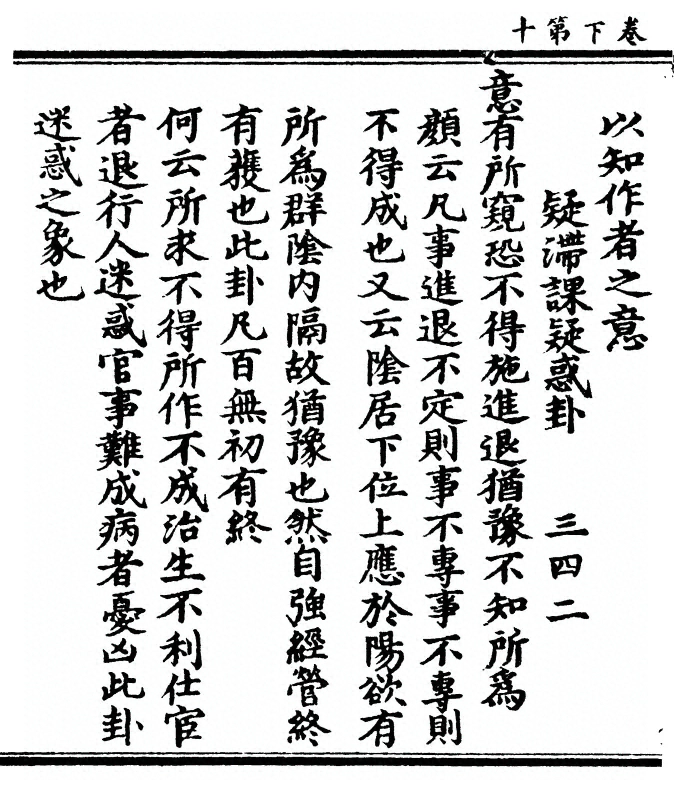 卷下第十
以知作者之意
疑滯課疑惑卦 三四二
意有所窺恐不得施進退猶豫不知所爲
顏云凡事進退不定則事不專事不專則
不得成也又云陰居下位上應於陽欲有
所爲群陰内隔故猶豫也然自強經營終
有獲也此卦凡百無初有終
何云所求不得所作不成治生不利仕宦
者退行人迷惑官事難成病者憂凶此卦
迷惑之象也